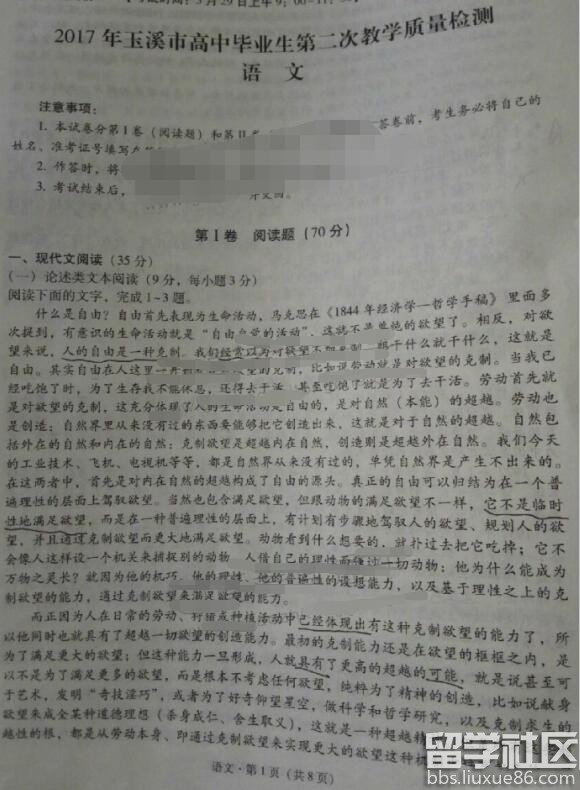 2017年玉溪市高中毕业生第二次教学质量检测
语 文
注意事项:
1. 本试卷分第Ⅰ卷(阅读题)和第Ⅱ 答卷前,考生务必将自己的
姓名、准考证号填写
2. 作答时,将
3. 考试结束后,
第Ⅰ卷 阅读题(70分)
一、现代文阅读(35分)
(一)论述类文本阅读(9分,每小题3分)
阅读下面的文字,完成1~3题。
什么是自由?自由首先表现为生命活动,马克思在《1844年经济学—哲学手稿》里面多
次提到,有意识的生命活动就是“自由自觉的活动”,这就不是单纯的欲望了。相反,对欲
望来说,人的自由是一种克制。我们经常以为对欲望不加克制,想干什么就干什么,这就是
自由。其实自由在人这里一开始 欲望的克制,比如说劳动就是对欲望的克制。当我已
经吃饱了时,为了生存我不能休息,还得去干活,甚至吃饱了就是为了去干活。劳动首先就
是对欲望的克制,这充分体现了人的生命活动是自由的,是对自然(本能)的超越。劳动也
是创造:自然界里从来没有过的东西要能够把它创造出来,这就是对于自然的超越。自然包
括外在的自然和内在的自然:克制欲望是超越内在自然,创造则是超越外在自然。我们今天
的工业技术、飞机、电视机等等,都是自然界从来没有过的,单凭自然界是产生不出来的。
在这两者中,首先是对内在自然的超越构成了自由的源头。真正的自由可以归结为在一个普
遍理性的层面上驾驭欲望。当然也包含满足欲望,但跟动物的满足欲望不一样,它不是临时
性地满足欲望,而是在一种普遍理性的层面上,有计划有步骤地驾驭人的欲望、规划人的欲
望,并且通过克制欲望而更大地满足欲望。动物看到什么想要的,就扑过去把它吃掉;它不
会像人这样设一个机关来捕捉别的动物。人借自己的理性而超过一切动物:他为什么能成为
万物之灵长?就因为他的机巧、他的理性、他的普遍性的设想能力,以及基于理性之上的克
制欲望的能力,通过克制欲望来满足欲望的能力。
而正因为人在日常的劳动、狩猎或种植活动中已经体现出有这种克制欲望的能力了,所
以他同时也就具有了超越一切欲望的创造能力。最初的克制能力还是在欲望的框框之内,是
为了满足更大的欲望;但这种能力一旦形成,人就具有了更高的超越的可能,就是说甚至可
以不是为了满足更多的欲望,而是根本不考虑任何欲望,纯粹为了精神的创造,比如说献身
于艺术,发明“奇技淫巧”,或者为了好奇仰望星空,做科学和哲学研究,以及克制求生的
欲望来成全某种道德理想(杀身成仁、舍生取义),这就是一种超越精
越性的根,都是从劳动本身,即通过克制欲望来实现更大的欲望这种
语文·第1页(共8页)
留学社区
bbs.liuxue86.com